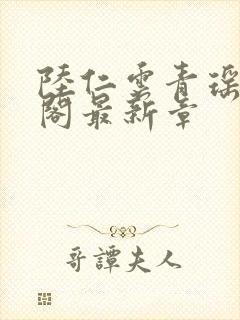 陸仁雲青瑶
閣最新章
哥譚夫人